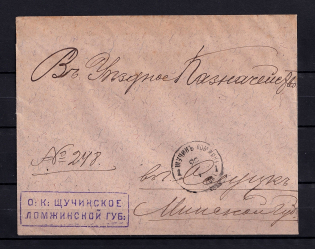 Въ Уѣздное Казначейство
№ 248.
ЩУЧИНЪ ЛОМЖ.
въ Слуцкъ
Минской Губ
О.К: ЩУЧИНСКОЕ
ЛОМЖИНСКОЙ ГУБ: